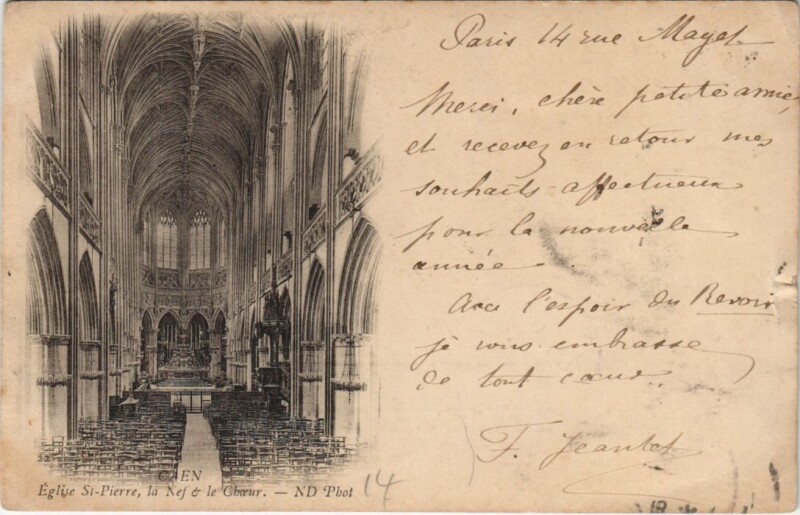 Paris 14 rue Mayet
Merci, chère petite amie,
et recevez en retour mes
souhaits affectueux
pour la nouvelle
année
Avec l'espoir du Revoir
je vous embrasse
de tout cœur.
F. Jeantet
CAEN
Église St-Pierre, la Nef & le Chœur. — ND Phot
14